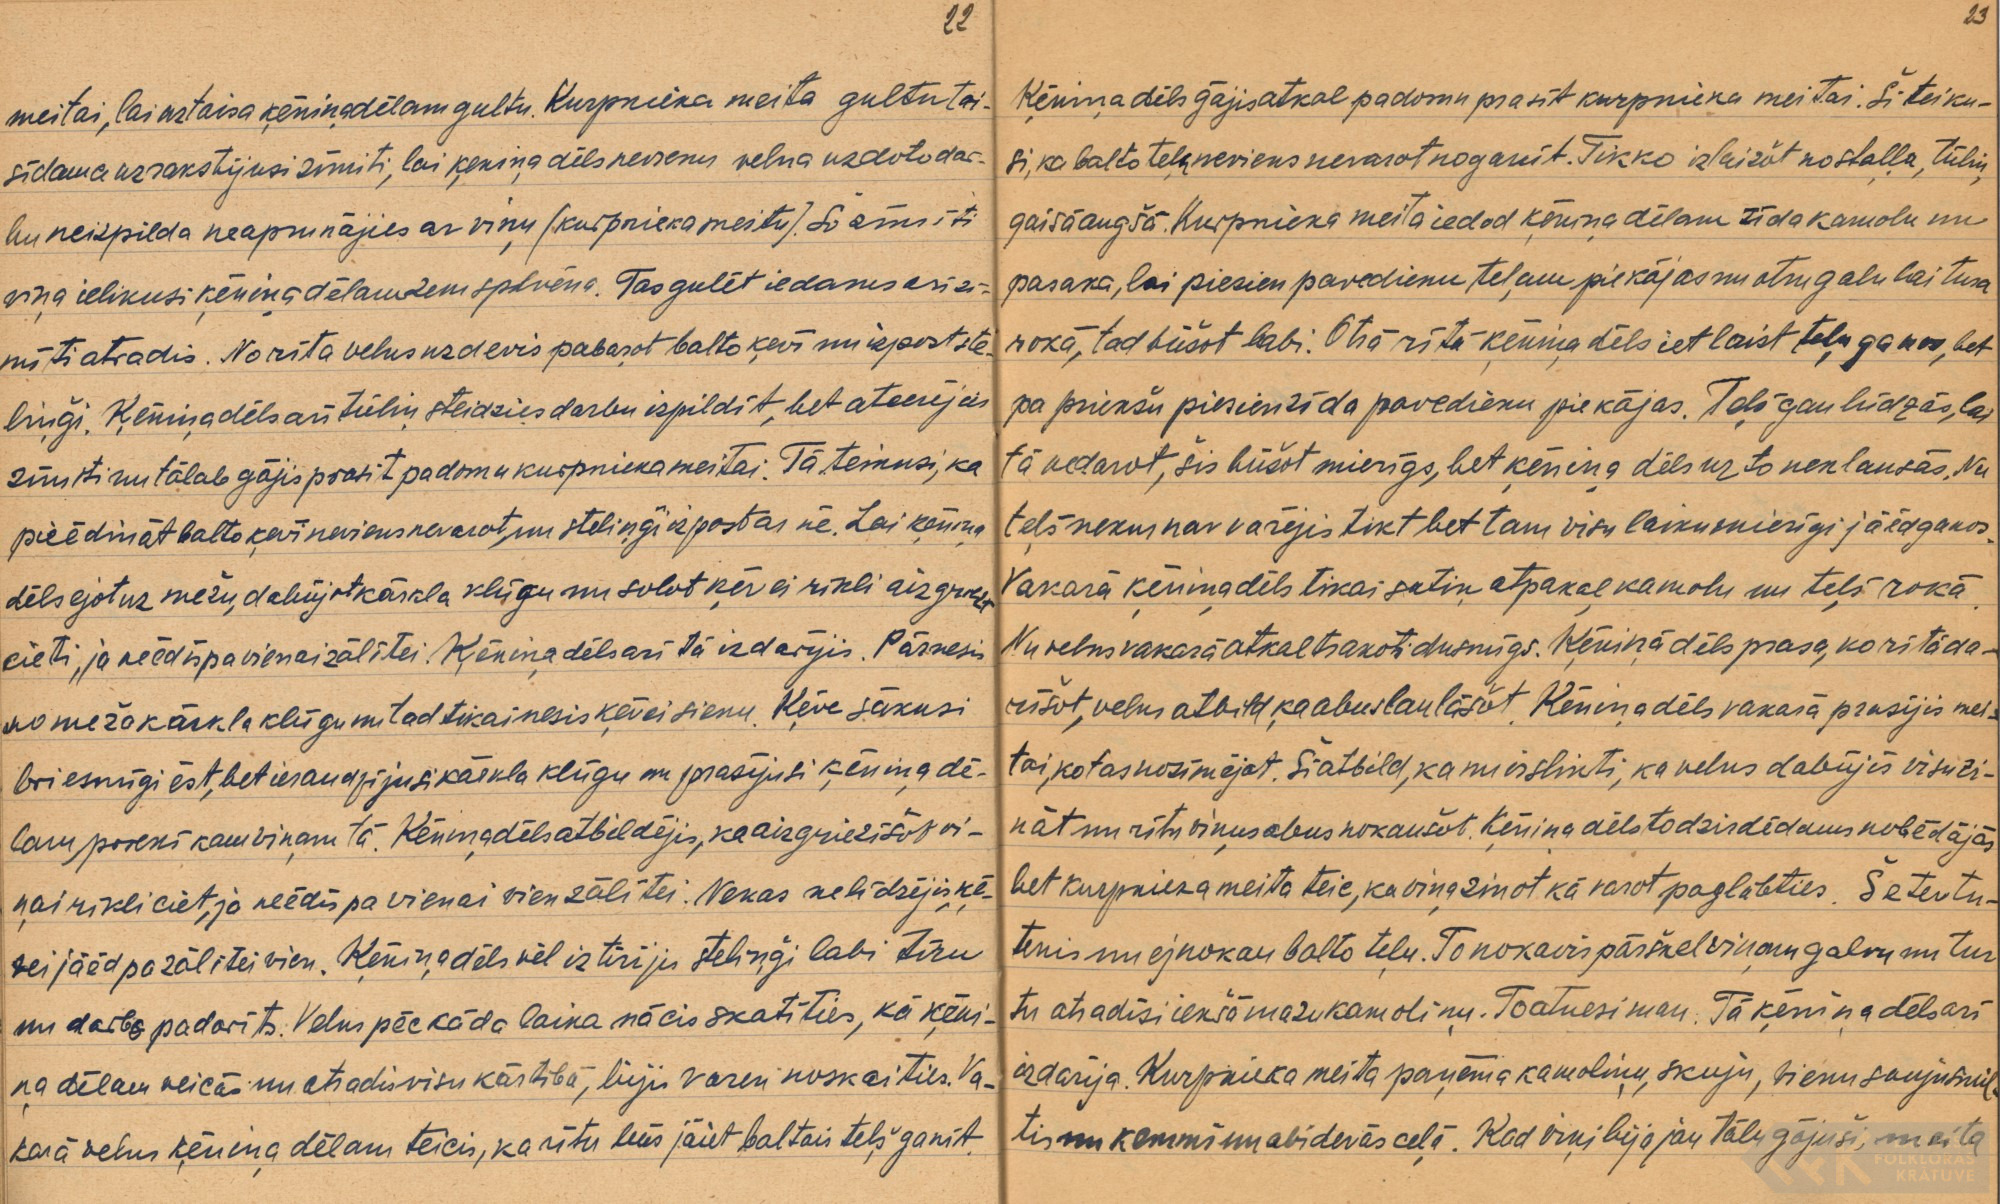 22
meitai, lai uztaisa ķēniņa dēlam gultu. Kurpnieka meita gultu tai-
sīdama uzrakstījusi zīmīti, lai ķēniņa dēls nevienu velna uzdoto dar-
bu neizpilda neaprunājies ar viņu (kurpnieka meitu). Šo zīmīti
viņa ielikusi ķēniņa dēlam zem spilvēna. Tas gulēt iedams arī zī-
mīti atradis. No rīta velns uzdevis pabarot balto ķēvi un izpost ste-
liņģi. Ķēniņa dēls arī tūliņ steidzies darbu izpildīt, bet atcerējies
zīmīti un tālab gājis prasīt padomu kurpnieka meitai. Tā teikusi, ka
pieēdināt balto ķēvi neviens nevarot, un steliņģi izpost ar nē. Lai ķēniņa
dēls ejot uz mežu, dabūjot kārkla klūgu un solot ķēvei rīkli aizgriezt
cieti, ja neēdīs pa vienai zālītei. Ķēniņa dēls arī tā izdarījis. Pārnesis
no meža kārkla klūgu un tad tikai nesis ķēvei sienu. Ķēve sākusi
briesmīgi ēst, bet ieraudzījusi kārkla klūgu un prasījusi ķēniņa dē-
lam, kam viņam tā. Ķēniņa dēls atbildējis, ka aizgriezīšot vi-
ņai rīkli ciet, ja neēdīs pa vienai vien zālītei. Nekas nelīdzējis, ķē-
vei jāēd pa zālītei vien. Ķēniņa dēls vēl iztīrījis steliņģi labi tīru
un darbs padarīts. Velns pēc kāda laika nācis skatīties, kā ķēni-
ņa dēlam veicās un atradis visu kārtībā, bijis varen noskaities. Va-
karā velns ķēniņa dēlam teicis, ka rītu būs jāiet baltais telš ganīt.
23
Ķēniņa dēls gājis atkal padomu prasīt kurpnieka meitai. Šī teiku-
si, ka balto teļu neviens nevarot noganīt. Tikko izlaižot no staļļa, tūliņ
gaisā augšā. Kurpnieka meita iedod ķēniņa dēlam zīda kamolu un
pasaka, lai piesien pavedienu teļam pie kājas un otru galu lai tura
rokā, tad būšot labi. Otrā rītā ķēniņa dēls iet laist teļu ganos, bet
pa priekšu piesien zīda pavedienu pie kājas. Teļš gan lūdzās, lai
tā nedarot, šis būšot mierīgs, bet ķēniņa dēls uz to neklausās. Nu
teļš nekur nav varējis tikt bet tam visu laiku mierīgi jāēd ganos.
Vakarā ķēniņa dēls tikai satin atpakaļ kamolu un teļš rokā.
Nu velns vakarā atkal trakoti dusmīgs. Ķēniņa dēls prasa, ko rītā da-
rīšot, velns atbild, ka abus laulāšot. Ķēniņa dēls vakarā prasījis mei-
tai, ko tas nozīmējot. Šī atbild, ka nu ir slikti, ka velns dabūjis visu zi-
nāt un rītu viņus abus nokaušot. Ķēniņa dēls to dzirdēdams nobēdājās
bet kurpnieka meita teic, ka viņa zinot kā varot paglābties. Še tev tu-
tenis un ej nokau balto teļu. To nokāvis pāršķel viņam galvu un tur
tu atradīsi iekšā mazu kamoliņu. To atnesi man. Tā ķēniņa dēls arī
izdarīja. Kurpnieka meita paņēma kamoliņu, skuju, vienu sauju smil-
tis un ķemmi un abi devās ceļā. Kad viņi bija jau tālu gājuši, meita
FOLKLORAS
KRĀTUVE